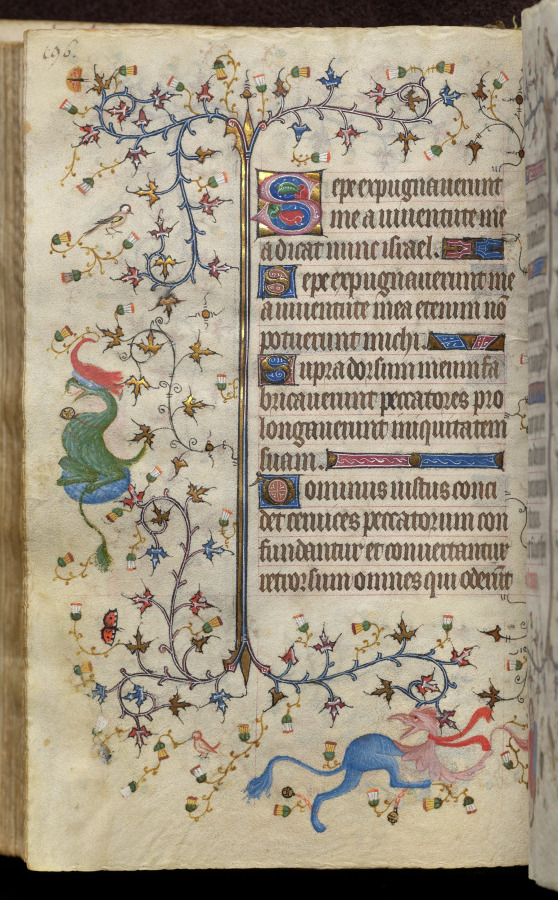 196.
Sepe expugnauerunt
me a iuuentute me
a dicat nunc israel.
Sepe expugnauerunt me
a iuuentute mea etenim nō
potuerunt michi.
Supra dorsum meum fa
bricauerunt peccatores pro
longauerunt iniquitatem
suam.
Dominus iustus conci
det ceruices peccatorum con
fundantur et conuertantur
retrorsum omnes qui oderūt